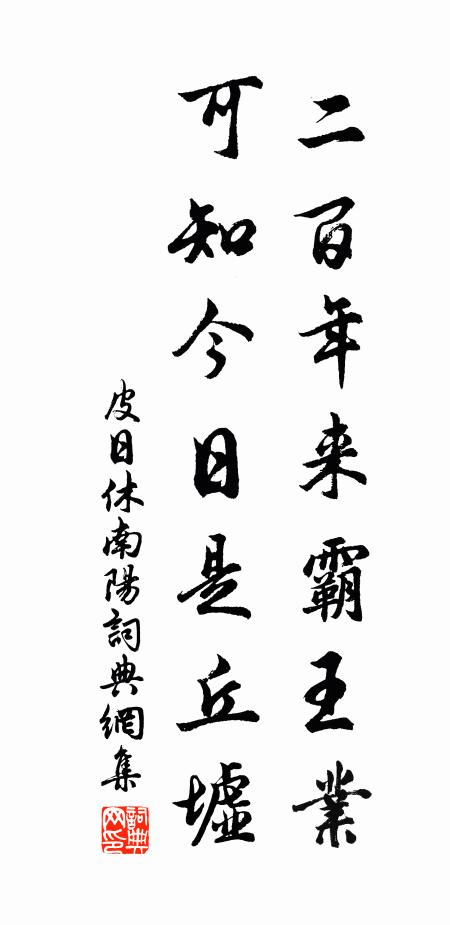 二百年来霸王業
可知今日是丘墟
皮日休南陽詞典網集
詞典网印